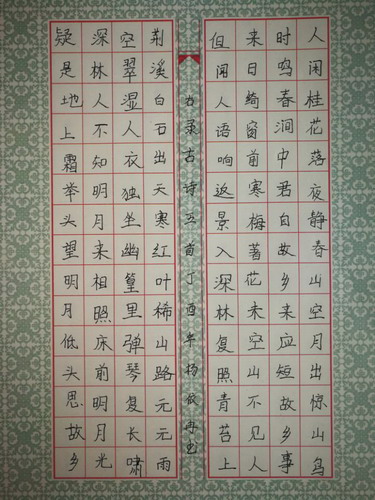 人闲桂花落夜静春山空月出惊山鸟
时鸣春涧中君自故乡来应短故乡事
来日绮窗前寒梅著花未空山不见人
但闻人语响返景入深林复照青苔上
荆溪白石出天寒红叶稀山路元元雨
空翠湿人衣独坐幽篁里弹琴复长啸
深林人不知明月来相照床前明月光
疑是地上霜举头望明月低头思故乡
右录古诗五首丁酉年杨书